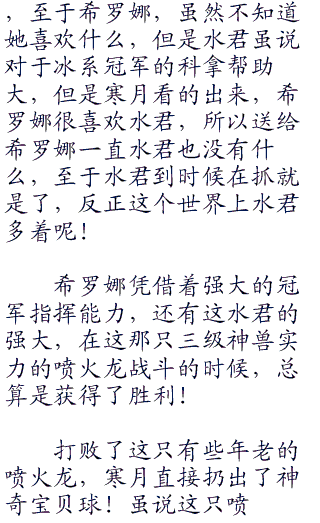 ，至于希罗娜，虽然不知道
她喜欢什么，但是水君虽说
对于冰系冠军的科拿帮助
大，但是寒月看的出来，希
罗娜很喜欢水君，所以送给
希罗娜一直水君也没有什
么，至于水君到时候在抓就
是了，反正这个世界上水君
多着呢！
希罗娜凭借着强大的冠
军指挥能力，还有这水君的
强大，在这那只三级神兽实
力的喷火龙战斗的时候，总
算是获得了胜利！
打败了这只有些年老的
喷火龙，寒月直接扔出了神
奇宝贝球！虽说这只喷